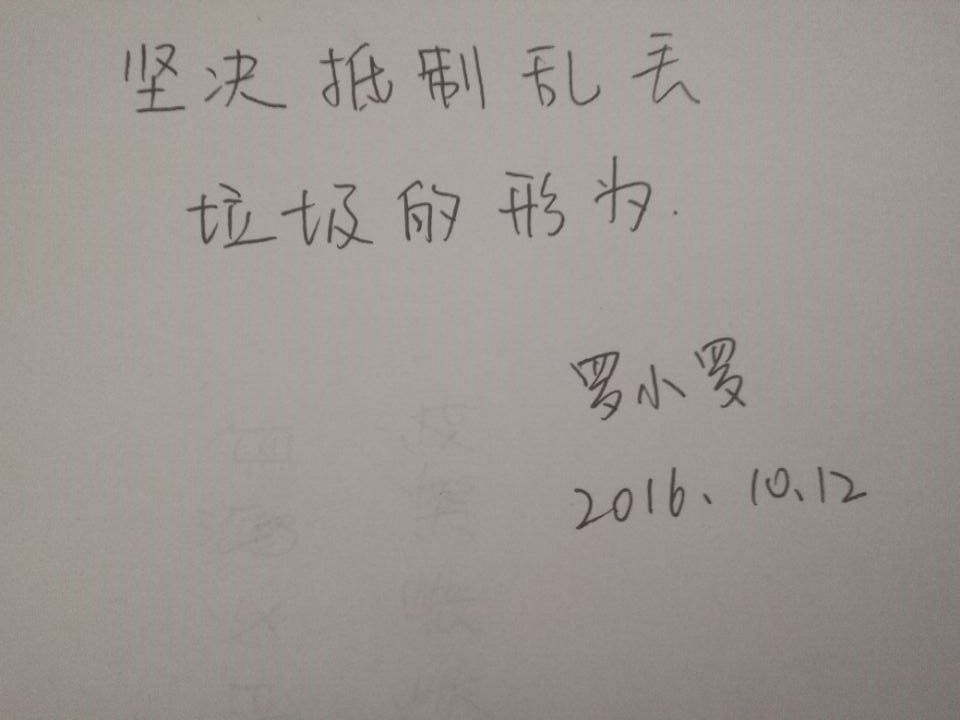 坚决抵制乱丢
垃圾的形为.
罗小罗
2016、10、12